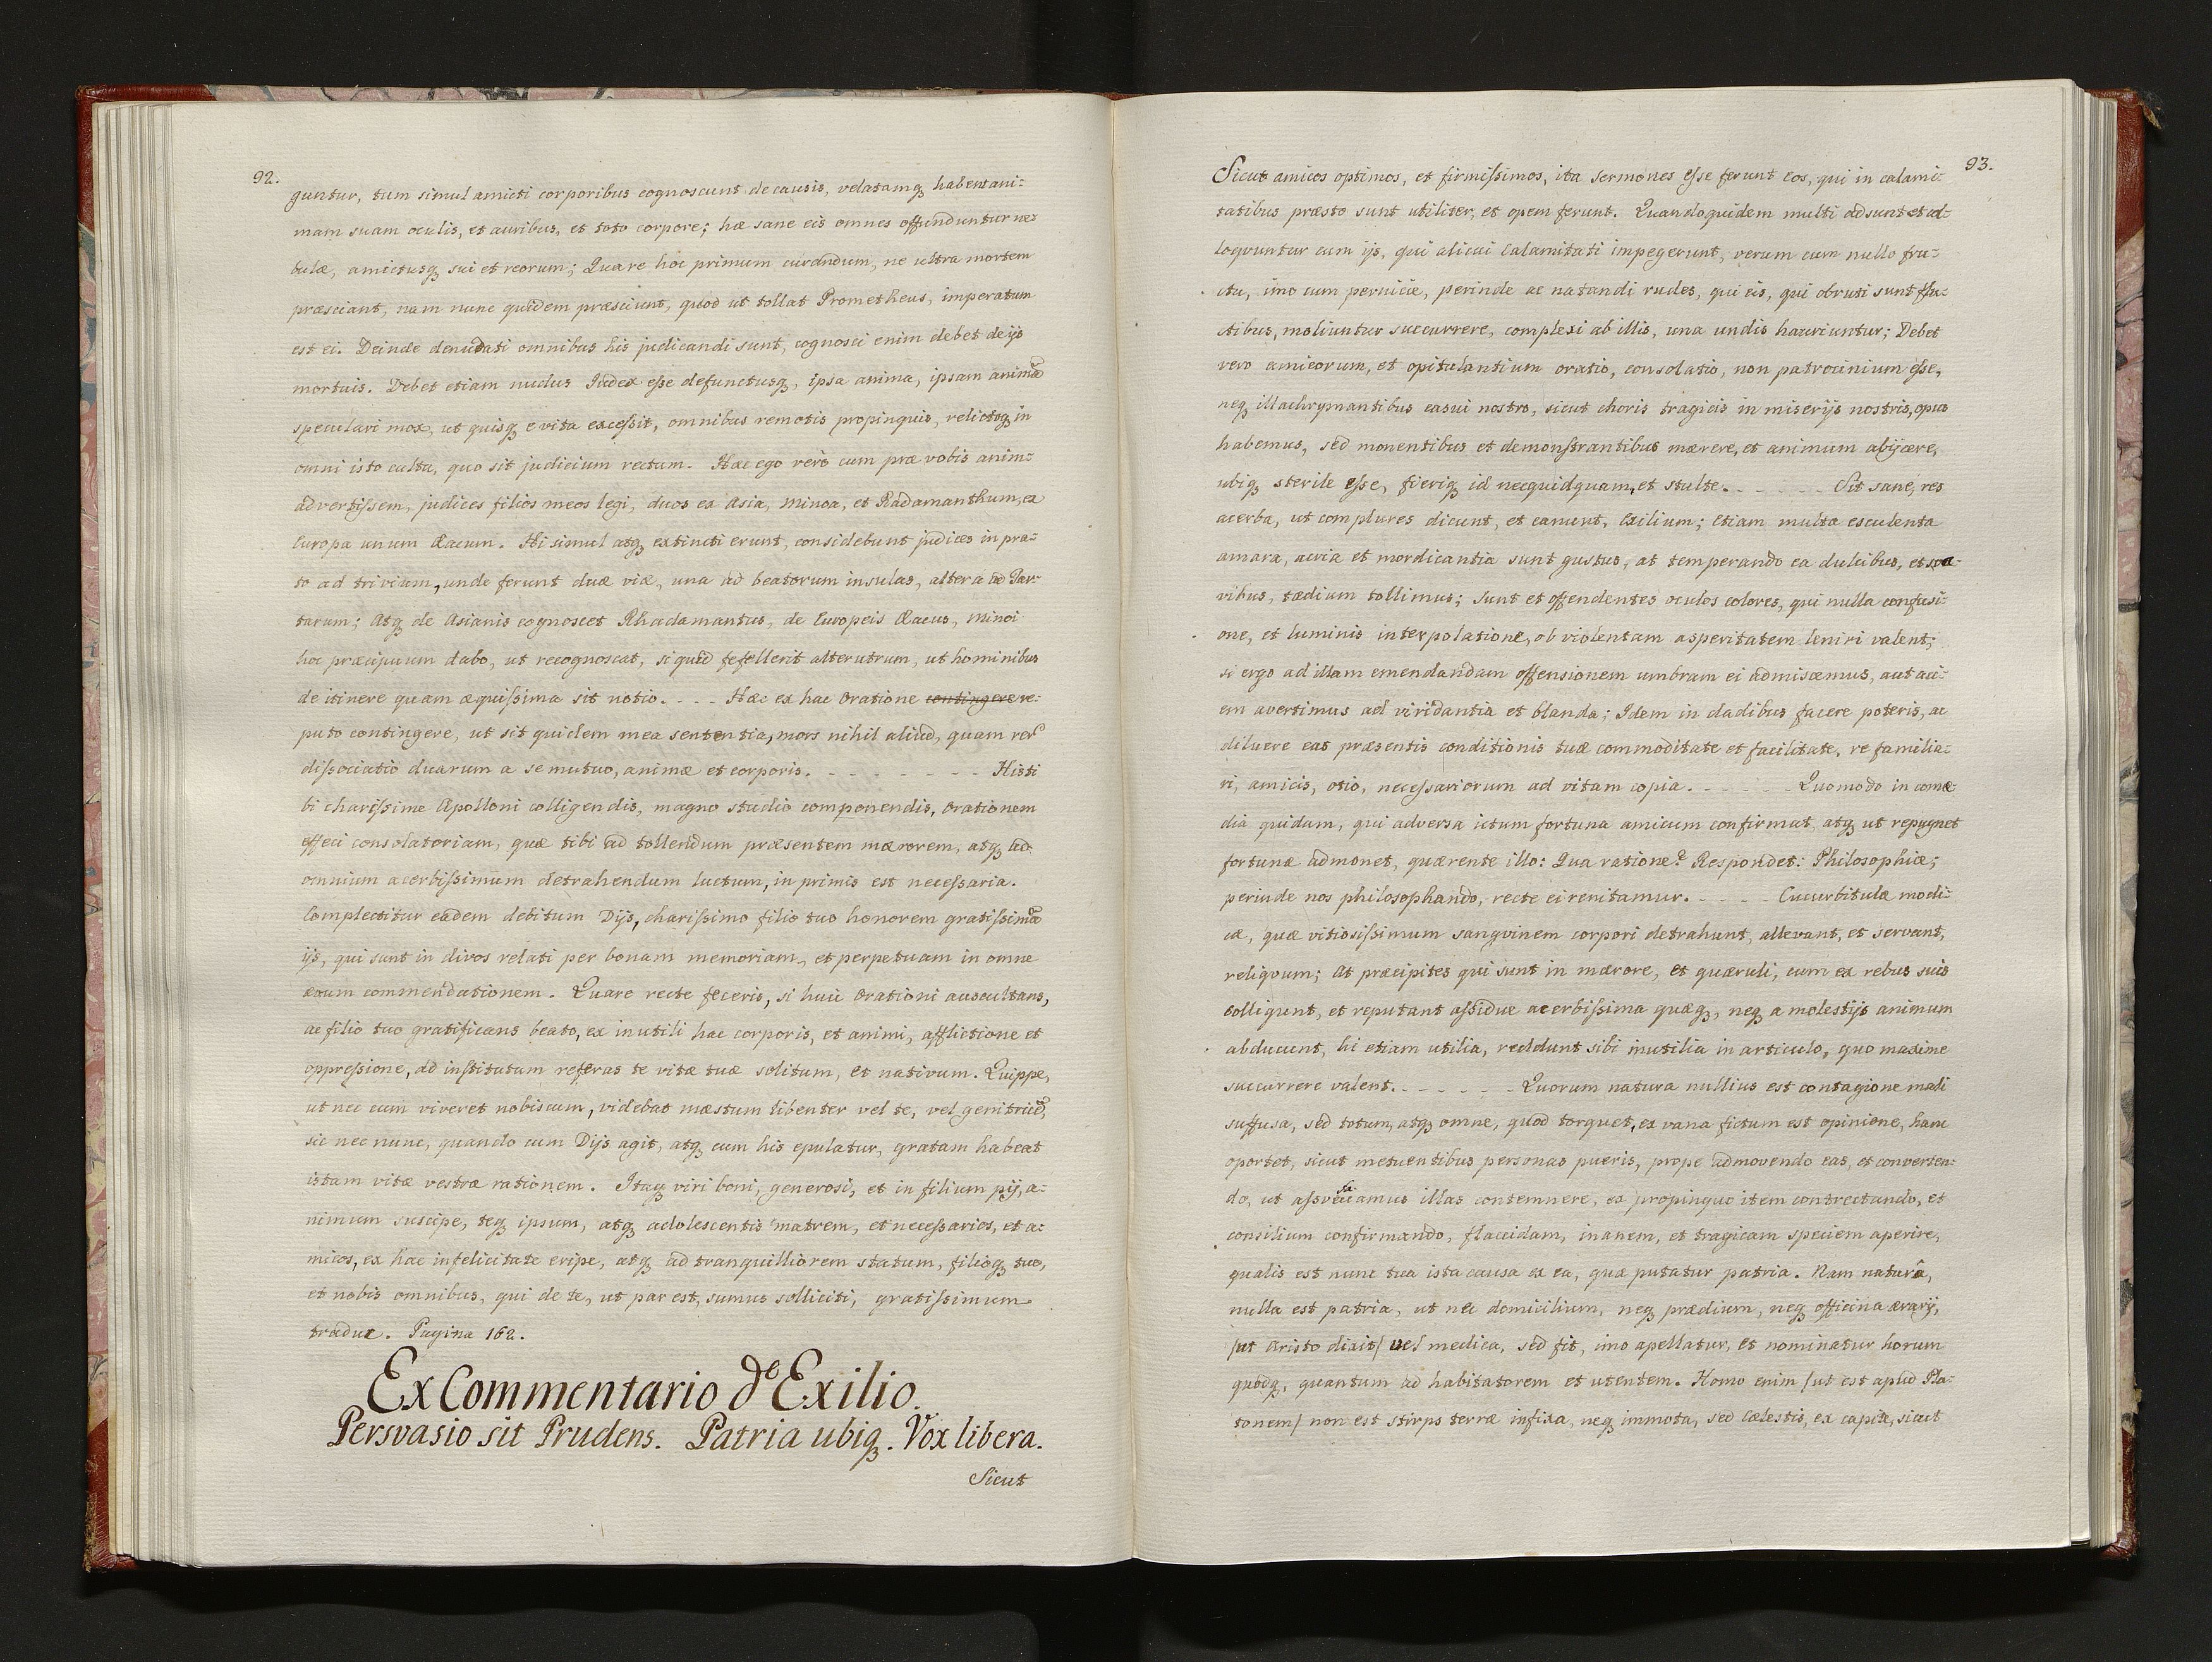 92.
guntur, tum simul amicti corporibus cognoscunt de causis, velatamq; habent ani-
mam suam oculis, et auribus, et toto corpore; hæ sane eis omnes offunduntur ne-
bulæ, amictusq; sui et reorum; Quare hoc primum curandum, ne ultra mortem
præsciant, nam nunc quidem præsciunt, quod ut tollat Prometheus, imperatum
est ei. Deinde denudati omnibus his judicandi sunt, cognosci enim debet de ijs
mortuis. Debet etiam nudus Iudex esse defunctusq;, ipsa anima, ipsam animã
speculari mox, ut quisq; e vita excessit, omnibus remotis propinquis, relictoq; in
omni isto cultu, quo sit judicium rectum. Hæc ego vero cum præ vobis anim-
advertissem, judices filios meos legi, duos ex Asia, Minoa, et Radamanthum, ex
Europa unum Æacum. Hi simul atq; extincti erunt, considebunt judices in pra-
to ad triviam, unde ferunt duæ viæ, una ad beatorum insulas, altera ad Tar-
tarum; Atq; de Asianis cognoscet Rhadamantus, de Europeis Æacus, Minoi
hoc præcipuum dabo, ut recognoscat, si quid fefellerit alterutrum, ut hominibus
de itinere quam æquissima sit notio. - - - Hæc ex hac Oratione contingere re-
puto contingere, ut sit quidem mea sententia, mors nihil aliud, quam rerũ
dissociatio duarum a se mutuo, animæ et corporis. - - - - - - - - His ti
bi charissime Apolloni colligendis, magno studio componendis, Orationem
effeci consolatoriam, quæ tibi ad tollendum præsentem mærorem, atq; ad
omnium acerbissimum detrahendum luctum, in primis est necessaria.
Complectitur eadem debitum Dijs, charissimo filio tuo honorem gratissimũ
ijs, qui sunt in divos relati per bonam memoriam, et perpetuam in omne
ævum commendationem. Quare recte feceris, si huic Orationi auscultans,
ac filio tuo gratificans beato, ex inutili hac corporis, et animi, afflictione et
oppressione, ad institutum referas te vitæ tuæ solitum, et nativum. Quippe,
ut nec cum viveret nobiscum, videbat mæstum libenter vel te, vel genitricẽ,
sic nec nunc, quando cum Dijs agit, atq; cum his epulatur, gratam habeat
istam vitæ vestræ rationem. Itaq; viri boni, generosi, et in filium pij, a-
nimum suscipe, teq; ipsum, atq; adolescentis matrem, et necessarios, et a-
micos, ex hac infelicitate eripe, atq; ad tranquilliorem statum, filioq; tuo,
et nobis omnibus, qui de te, ut par est, sumus solliciti, gratissimum
traduc. Pagina 162.
Ex Commentario de Exilio.
Persvasio sit Prudens. Patria ubiq;. Vox libera.
Sicut
93.
Sicut amicos optimos, et firmissimos, ita sermones esse ferunt eos, qui in calami-
tatibus præsto sunt utiliter, et opem ferunt. Quandoquidem multi adsunt et al-
loqvuntur cum ijs, qui alicui Calamitati impegerunt, verum cum nullo fru-
ctu, imo cum pernicie, perinde ac natandi rudes, qui eis, qui obruti sunt flu-
ctibus, moliuntur succurrere, complexi ab illis, una undis hauriuntur; Debet
vero amicorum, et opitulantium oratio, consolatio, non patrocinium esse,
neq; illachrymantibus casui nostro, sicut choris tragicis in miserijs nostris, opus
habemus, sed monentibus et demonstrantibus mærere, et animum abijcere,
ubiq; sterile esse, fieriq; id necquidquam, et stulte. - - - - - - Sit sane, res
acerba, ut complures dicunt, et canunt, Exilium; Etiam multa esculenta
amara, acria et mordicantia sunt gustus, at temperando ea dulcibus, et sua-
vibus, tædium tollimus; Sunt et offendentes oculos colores, qui nulla confusi-
one, et luminis interpolatione, ob violentam asperitatem leniri valent;
si ergo ad illam emendandam offensionem umbram ei admiscemus, aut aci-
em avertimus ad viridantia et blanda; Idem in cladibus facere poteris, ac
diluere eas præsentis conditionis tuæ commoditate et facilitate, re familia-
ri, amicis, otio, necessariorum ad vitam copia. - - - - - Quomodo in comæ
dia quidam, qui adversa ictum fortuna amicum confirmat, atq; ut repugnet
fortunæ admonet, quærente illo: Qua ratione? Respondet: Philosophiæ;
perinde nos philosophando, recte ei renitamur. - - - - Cucurbitulæ modi-
cæ, quæ vitiosissimum sangvinem corpori detrahunt, allevant, et servant,
reliqvum; At præcipites qui sunt in mærore, et quæruli, cum ex rebus suis
colligunt, et reputant assidue acerbissima quæq;, neq; a molestijs animum
abducunt, hi etiam utilia, reddunt sibi inutilia in articulo, quo maxime
succurrere valent. - - - - - - Quorum natura nullius est contagione mali
suffusa, sed totum, atq; omne, quod torquet, ex vana fictum est opinione, hanc
oportet, sicut metuentibus personas pueris, prope admovendo eas, et converten-
do, ut assvefaciamus illas contemnere, ex propinquo item contrectando, et
consilium confirmando, flaccidam, inanem, et tragicam speciem aperire,
qualis est nunc tua ista causa ex ea, quæ putatur patria. Nam naturâ,
nulla est patria, ut nec domicilium, neq; prædium, neq; officina ærarij,
/ut Aristo dixit/ vel medica, sed fit, imo apellatur, et nominatur horum
quodq;, quantum ad habitatorem et utentem. Homo enim /ut est apud Pla-
tonem/ non est stirps terræ infixa, neq; immota, sed cælestis, ex capite, sicut